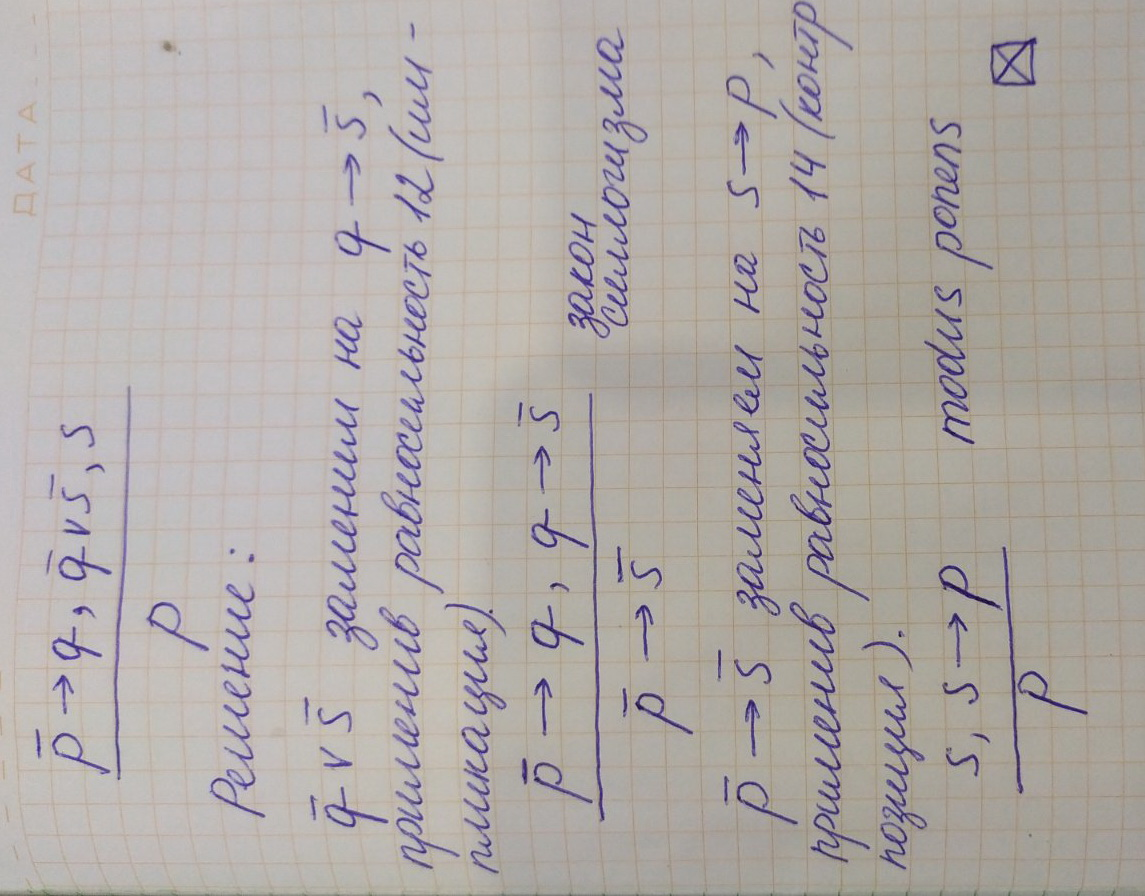 ДАТА
p̄ → q, q̄ ∨ s̄, s
p
Решение:
q̄ ∨ s̄ заменим на q → s̄,
применив равносильность 12 (им-
пликация).
p̄ → q, q → s̄ закон
силлогизма
p̄ → s̄
p̄ → s̄ заменяем на s → p,
применив равносильность 14 (контр
позиция).
s, s → p modus ponens
p